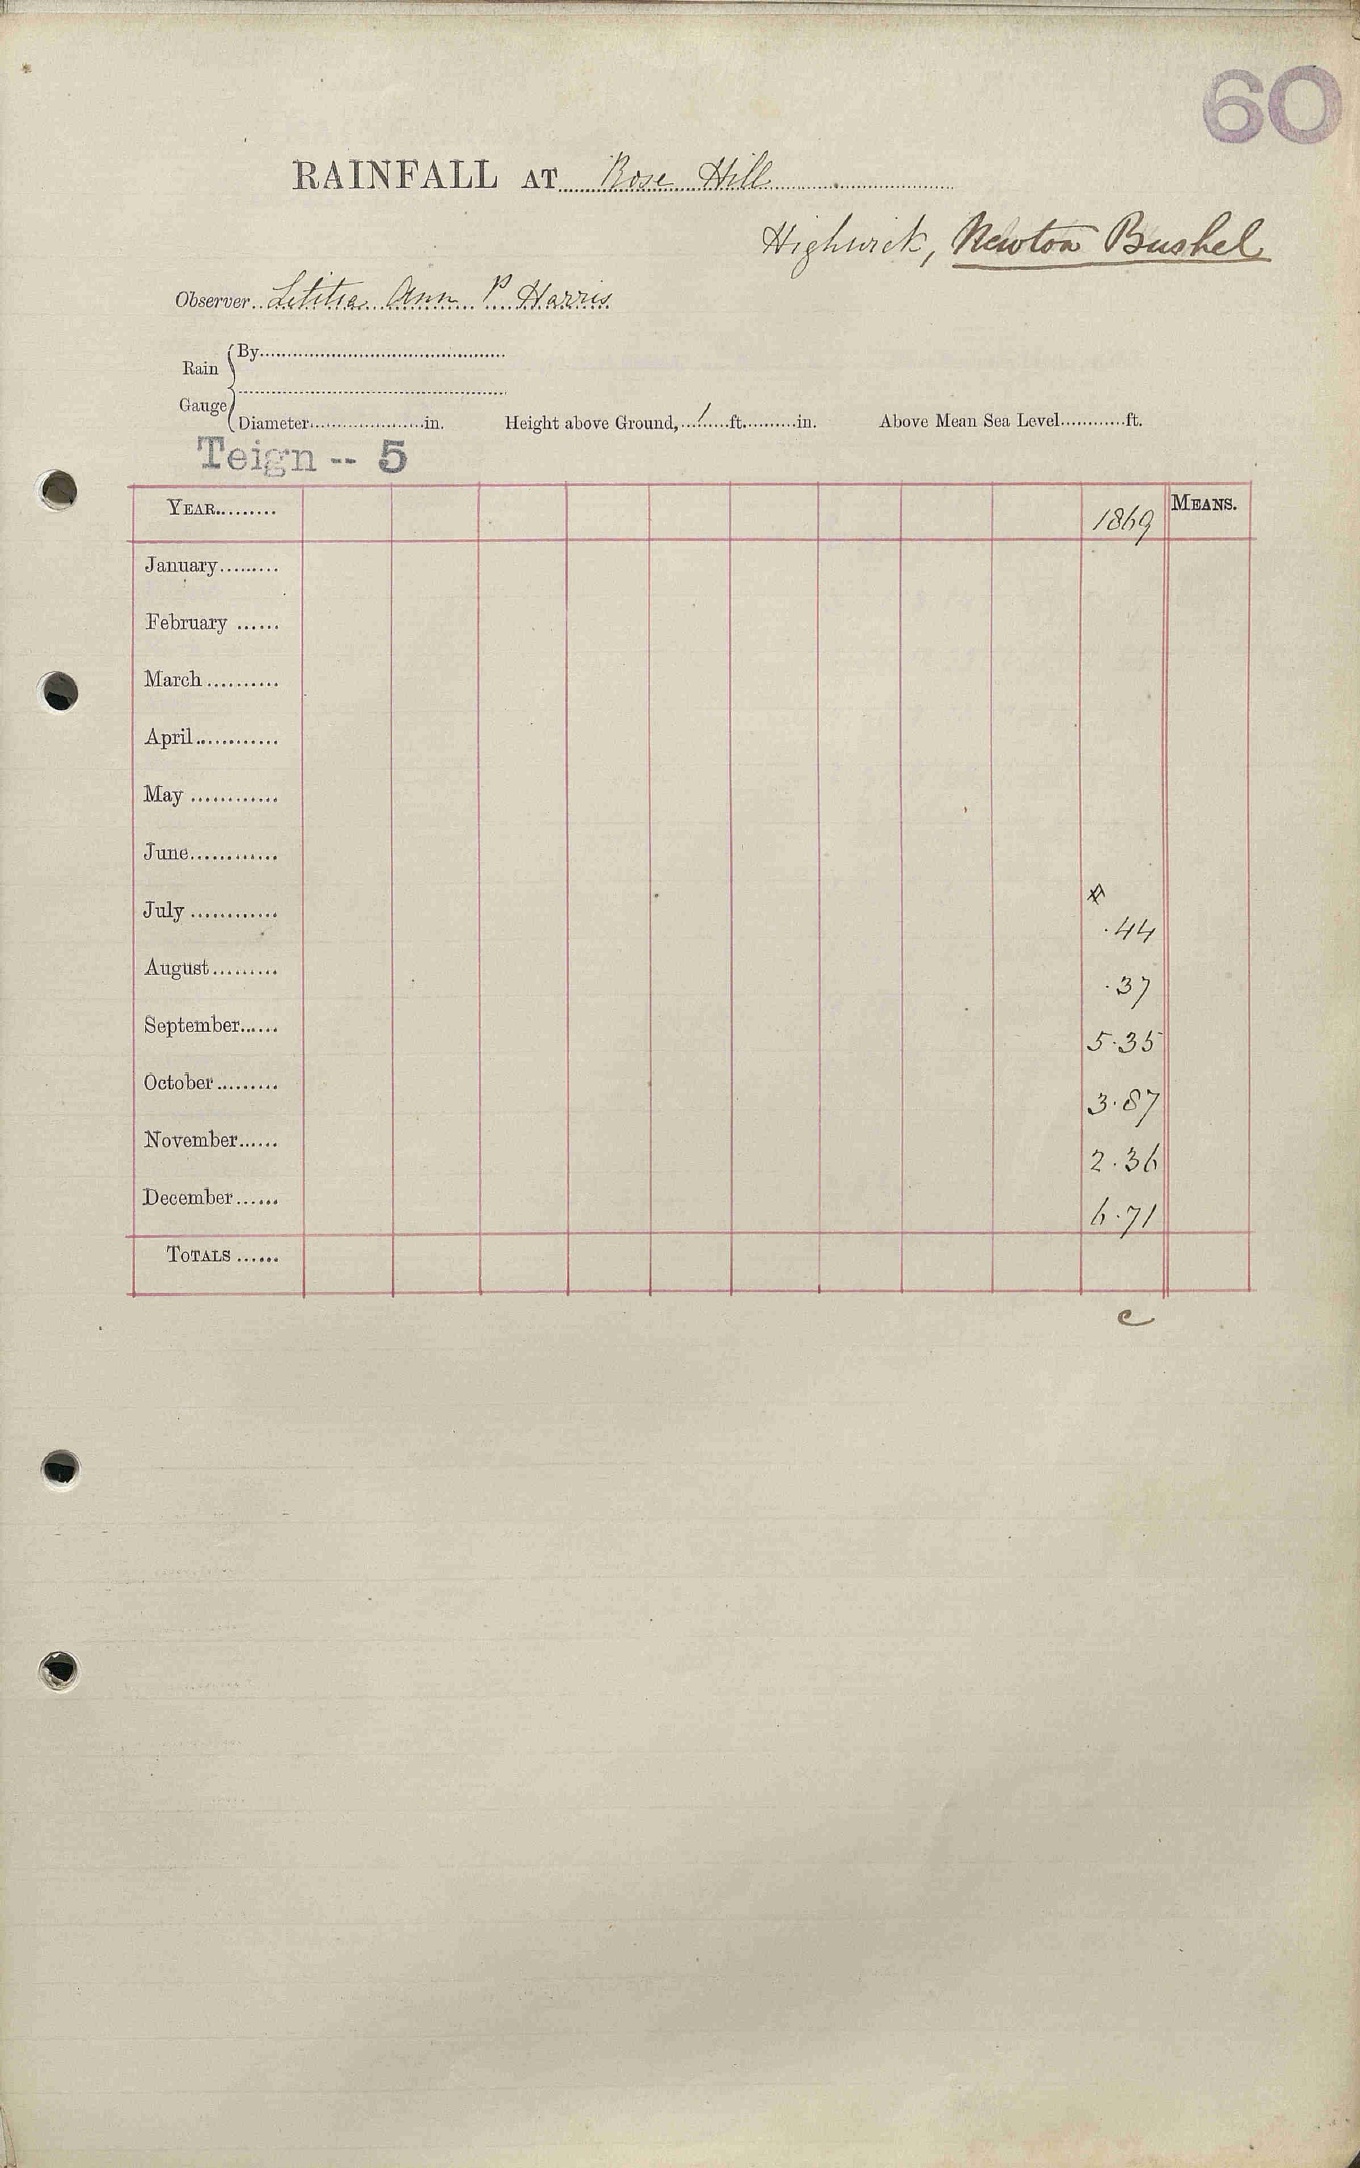 60
RAINFALL AT Rose Hill
Highwick, Newton Bushel
Observer Letitia Ann P Harris
Rain Gauge
By
Diameter in. Height above Ground, 1 ft. in. Above Mean Sea Level ft.
Teign -- 5
YEAR 1869 MEANS.
January
February
March
April
May
June
July .44
August .37
September 5.35
October 3.87
November 2.36
December 6.71
TOTALS
c